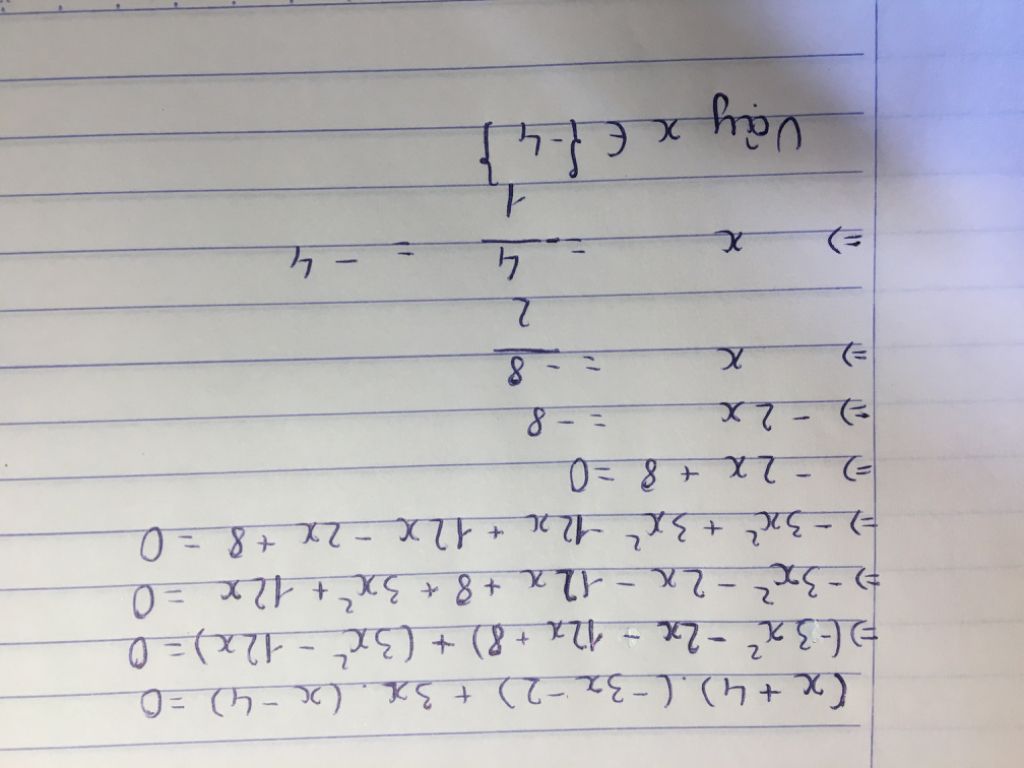 (x + 4).(-3x - 2) + 3x.(x - 4) = 0
=> (-3x² - 2x - 12x + 8) + (3x² - 12x) = 0
=> -3x² - 2x - 12x + 8 + 3x² + 12x = 0
=> -3x² + 3x² - 12x + 12x - 2x + 8 = 0
=> -2x + 8 = 0
=> -2x = -8
=> x = -8/2
=> x = -4/1 = -4
Vậy x ∈ {-4}